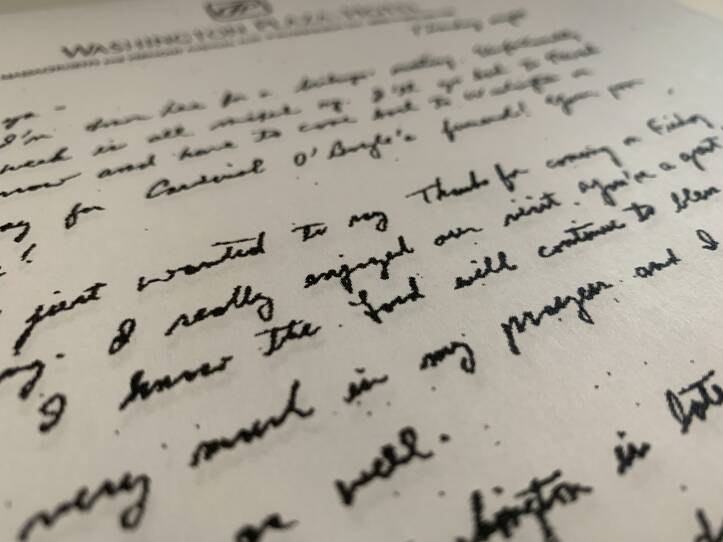 WASHINGTON PLAZA HOTEL
I'm down here for a bishops' meeting. Unfortunately
week is all mixed up. I'll go back to
and have to come back to Washington
for Cardinal O'Boyle's funeral!
just wanted to say Thanks for coming on Friday
. I really enjoyed our visit. You're a great
I know the Lord will continue to bless
very much in my prayers and I
as well.
in late